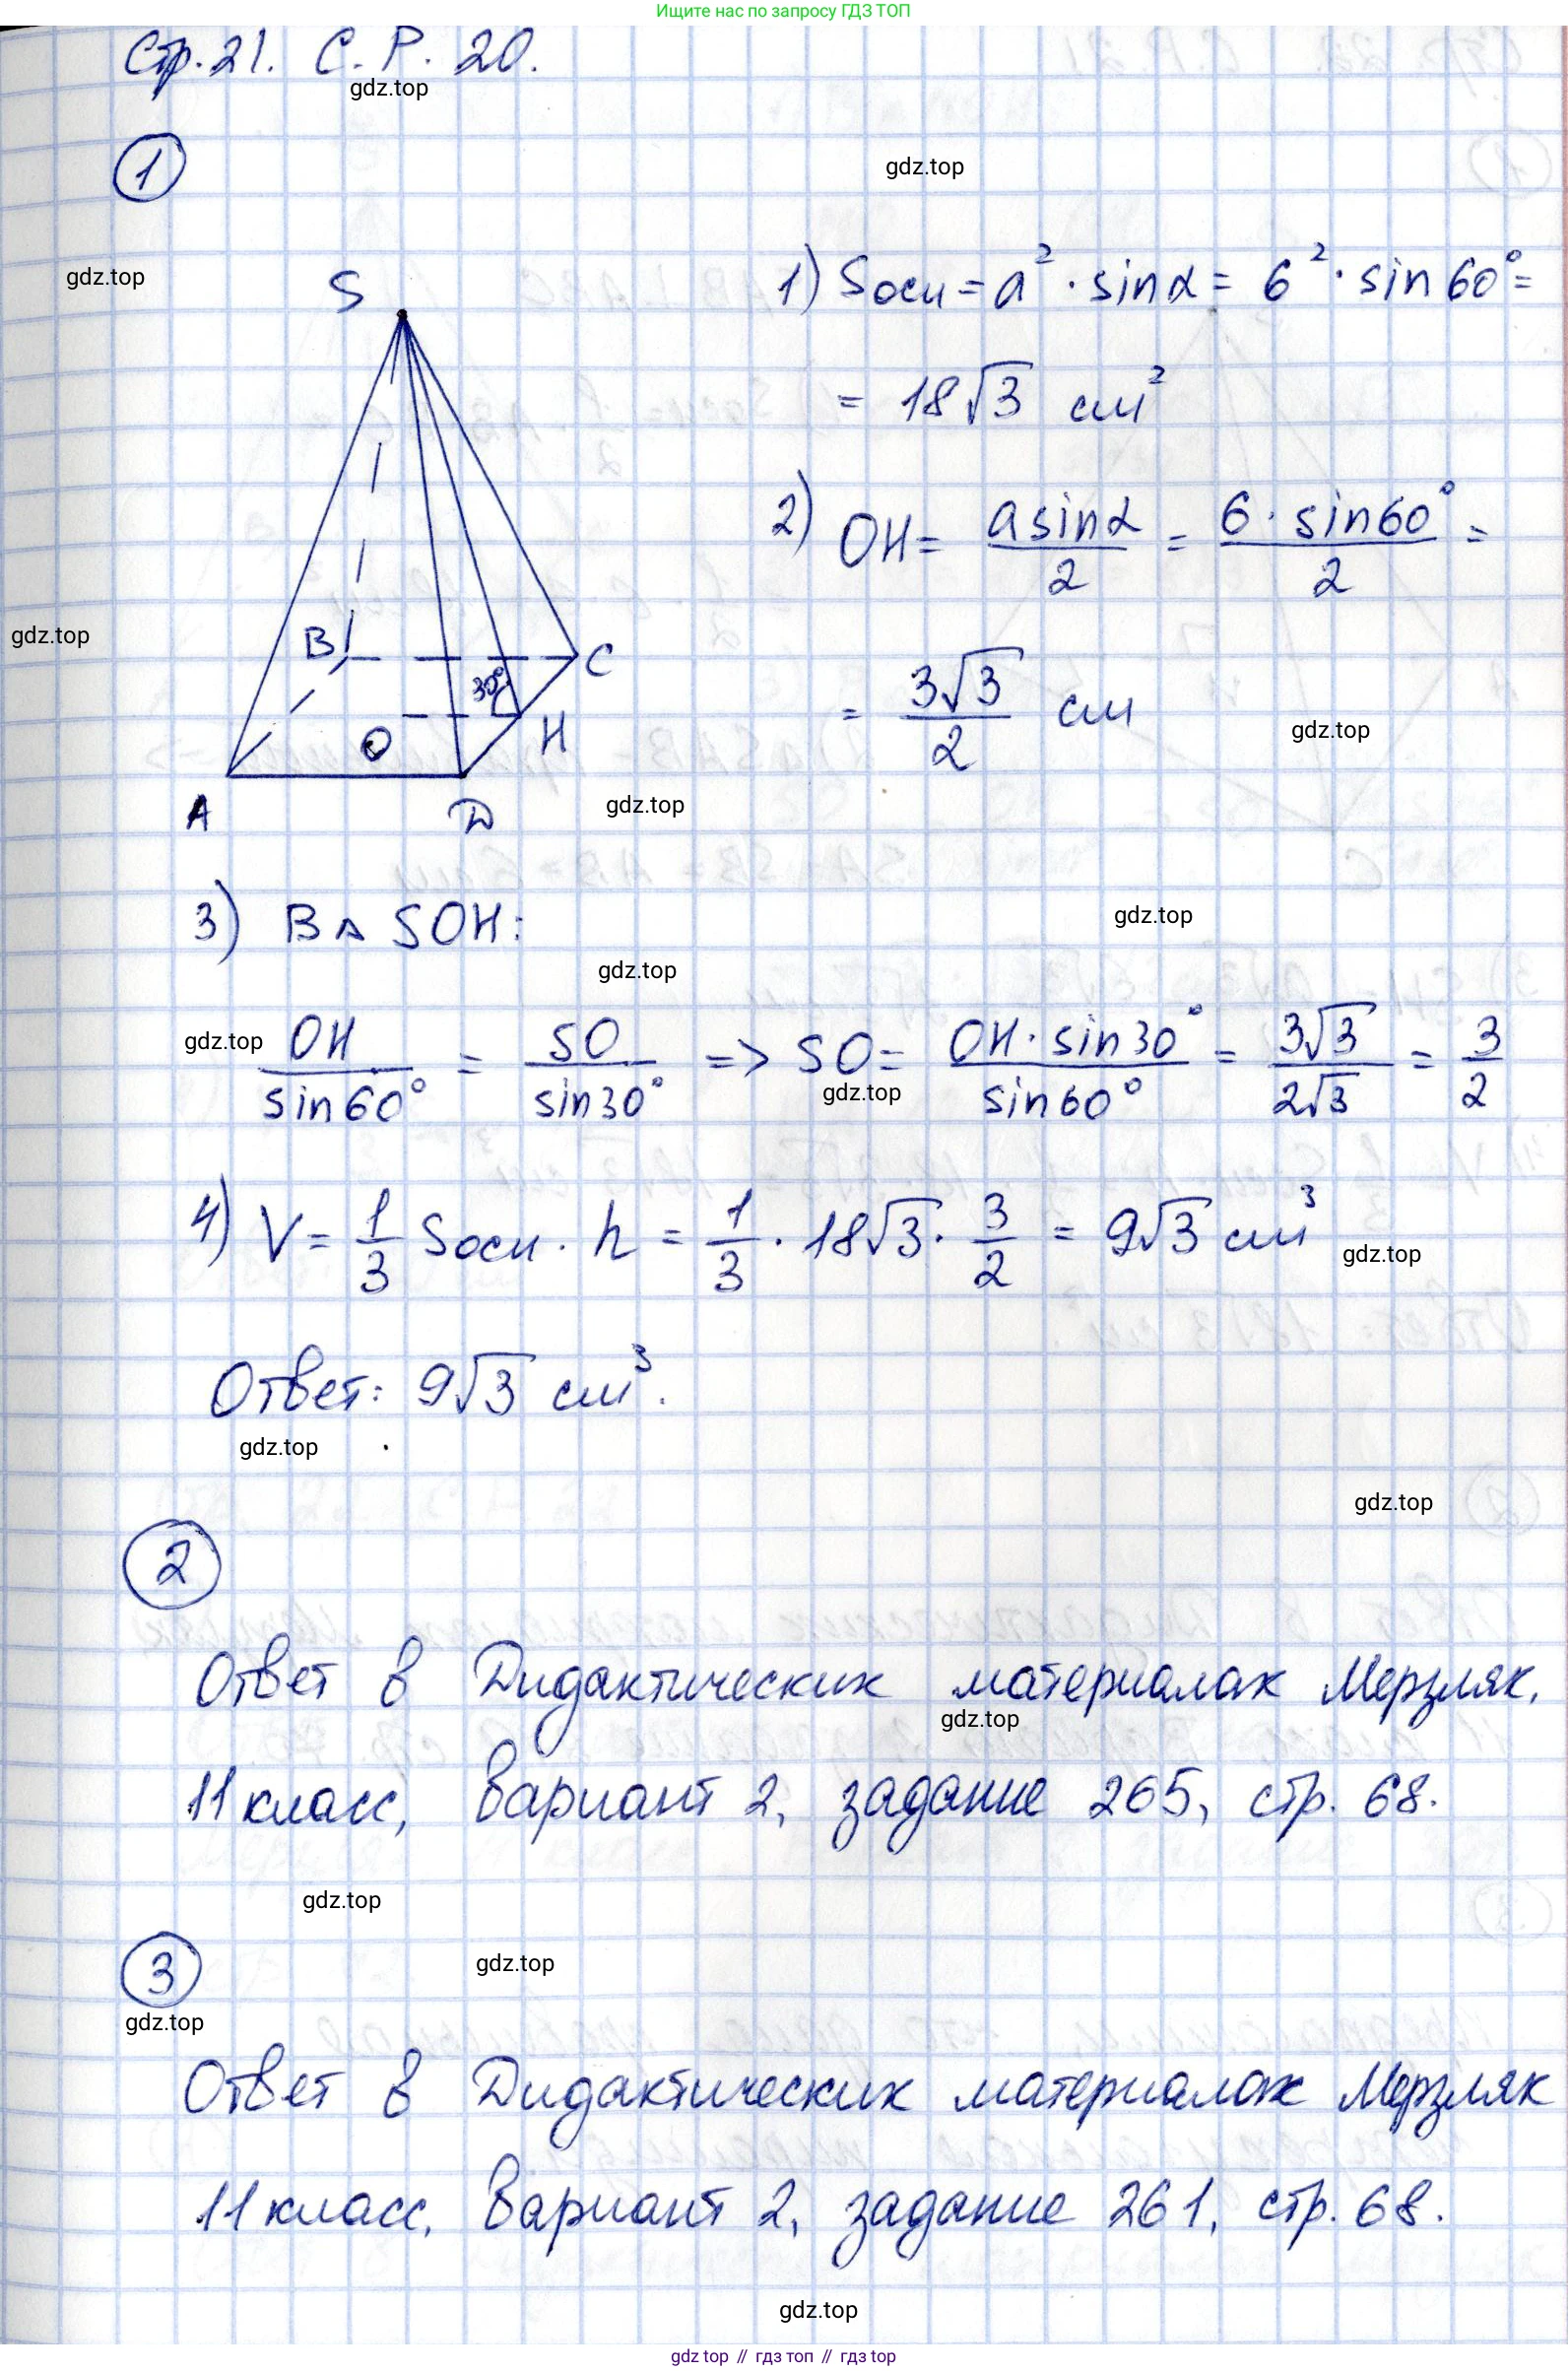 Ищите нас по запросу ГДЗ ТОП
Стр. 21. С. Р. 20.
gdz.top
1
gdz.top
gdz.top
S
1) Sосн = a² · sin α = 6² · sin 60° =
= 18√3 см²
2) OH = (a sin α)/2 = (6 · sin 60°)/2 =
gdz.top
B
C
30°
= (3√3)/2 см
O
H
gdz.top
A
D
gdz.top
3) В △ SOH:
gdz.top
gdz.top
gdz.top
OH/sin 60° = SO/sin 30° => SO = (OH · sin 30°)/sin 60° = (3√3)/(2√3) = 3/2
gdz.top
4) V = 1/3 Sосн · h = 1/3 · 18√3 · 3/2 = 9√3 см³
gdz.top
Ответ: 9√3 см³.
gdz.top
gdz.top
2
Ответ в Дидактических материалах Мерзляк,
gdz.top
11 класс, вариант 2, задание 265, стр. 68.
gdz.top
3
gdz.top
gdz.top
Ответ в Дидактических материалах Мерзляк
11 класс, вариант 2, задание 261, стр. 68.
gdz.top
gdz.top // гдз топ // гдз top